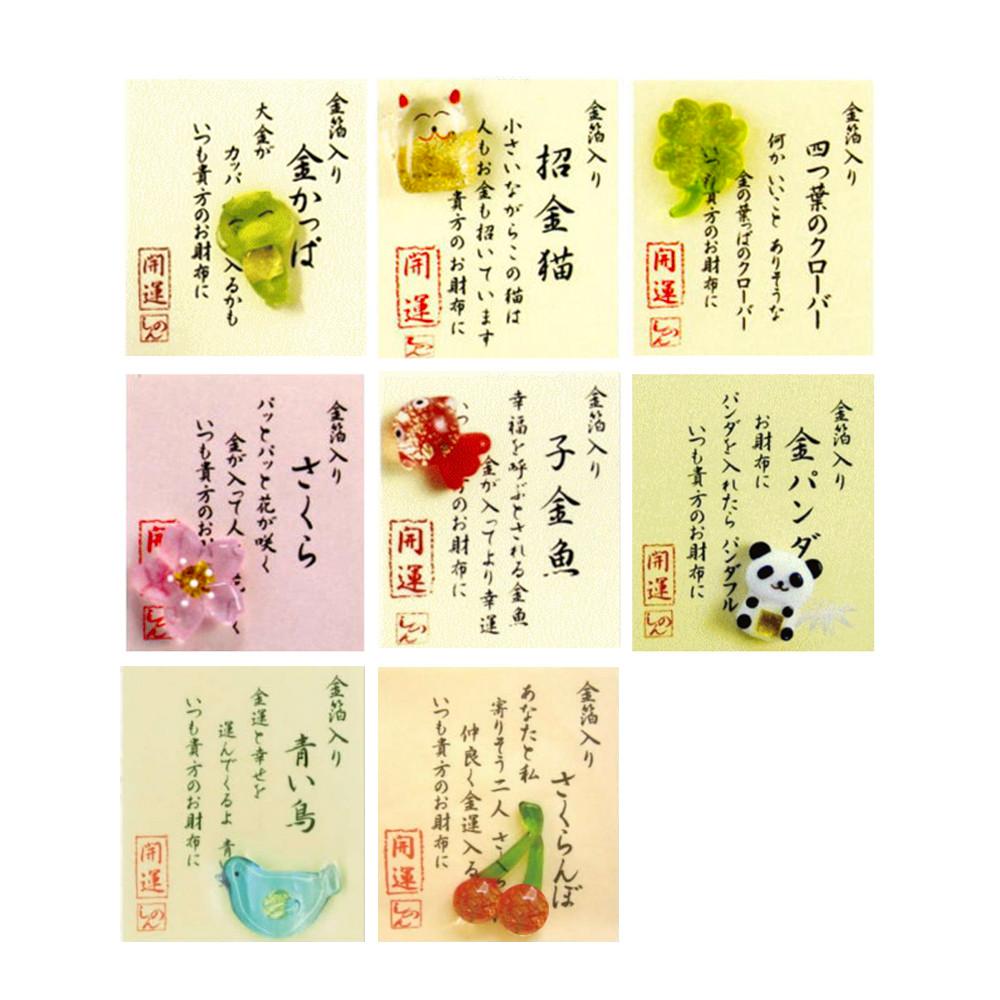 金箔入り
金かっぱ
大金が
カッパ 入るかも
いつも貴方のお財布に
開運
しのん
金箔入り
招金猫
小さいながらこの猫は
人もお金も招いています
貴方のお財布に
開運
金箔入り
四つ葉のクローバー
何かいいこと ありそうな
金の葉っぱのクローバー
いつも貴方のお財布に
開運
しのん
金箔入り
さくら
パッとパッと花が咲く
金が入って人
いつも貴方のお
開
金箔入り
子金魚
幸福を呼ぶとされる金魚
金が入ってより幸運
のお財布に
開運
しのん
金箔入り
金パンダ
お財布に
パンダを入れたら パンダフル
いつも貴方のお財布に
開運
しのん
金箔入り
青い鳥
金運と幸せを
運んでくるよ 青い
いつも貴方のお財布に
開運
しのん
金箔入り
さくらんぼ
あなたと私
寄りそう二人 さく
仲良く金運入る
いつも貴方のお財布に
開運
しのん